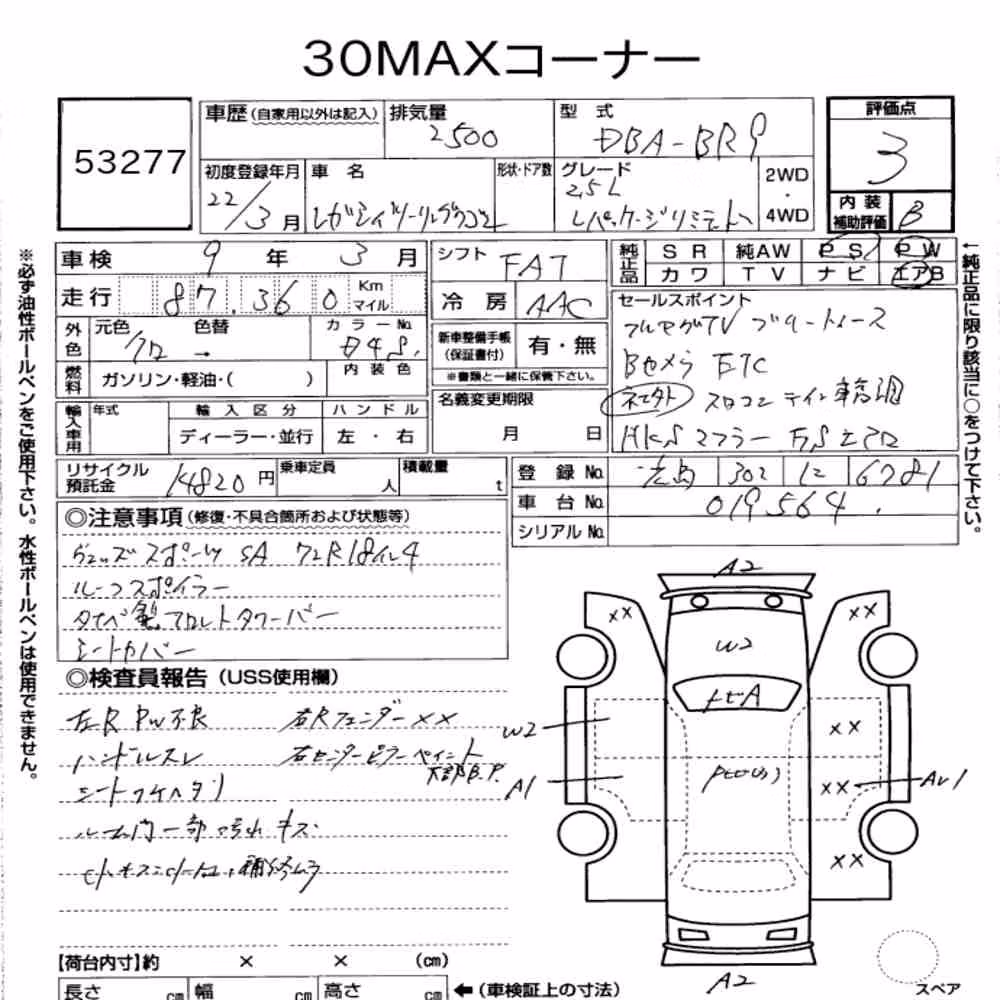 30MAXコーナー
53277
車歴 (自家用以外は記入)
排気量
2500
型 式
DBA-BR9
評価点
3
初度登録年月
22/3月
車 名
レガシィツーリングワゴン
形状・ドア数
グレード
2.5L
Lパッケージリミテッド
2WD
・
4WD
内 装
補助評価
B
車検 9 年 3 月
シフト FAT
純正品
S R 純AW P S P W
カワ T V ナビ エアB
走行 87.360 Km マイル
冷 房 AAC
セールスポイント
フルセグTV ブルートゥース
Bカメラ ETC
HKSマフラー
外色 元色 クロ → 色替 カラーNo. D4S.
新車整備手帳 (保証書付) 有・無
※書類と一緒に保管下さい。
燃料 ガソリン・軽油・( )
内 装 色
名義変更期限
月 日
輸入車用 年式
輸 入 区 分
ハ ン ド ル
ディーラー・並行 左 ・ 右
リサイクル預託金 14820 円
乗車定員 人
積載量 t
登 録 No. 広島 302 に 6781
車 台 No. 019564.
シリアル No.
◎注意事項 (修復・不具合箇所および状態等)
SA 72R18インチ
ルーフスポイラー
フロントタワーバー
シートカバー
◎検査員報告 (USS使用欄)
左R PW不良 右Rフェンダー××
ハンドルスレ 右センターピラーペイント
下部B.P.
ルーム内一部汚れ キズ
小キズ小凹、補修ムラ
A2
××
××
W2
W2
××
A1
××
AU1
××
A2
【荷台内寸】約 × × (cm)
長さ cm
幅 cm
高さ cm
←(車検証上の寸法)
スペア
※必ず油性ボールペンをご使用下さい。水性ボールペンは使用できません。
←純正品に限り該当に○をつけて下さい。